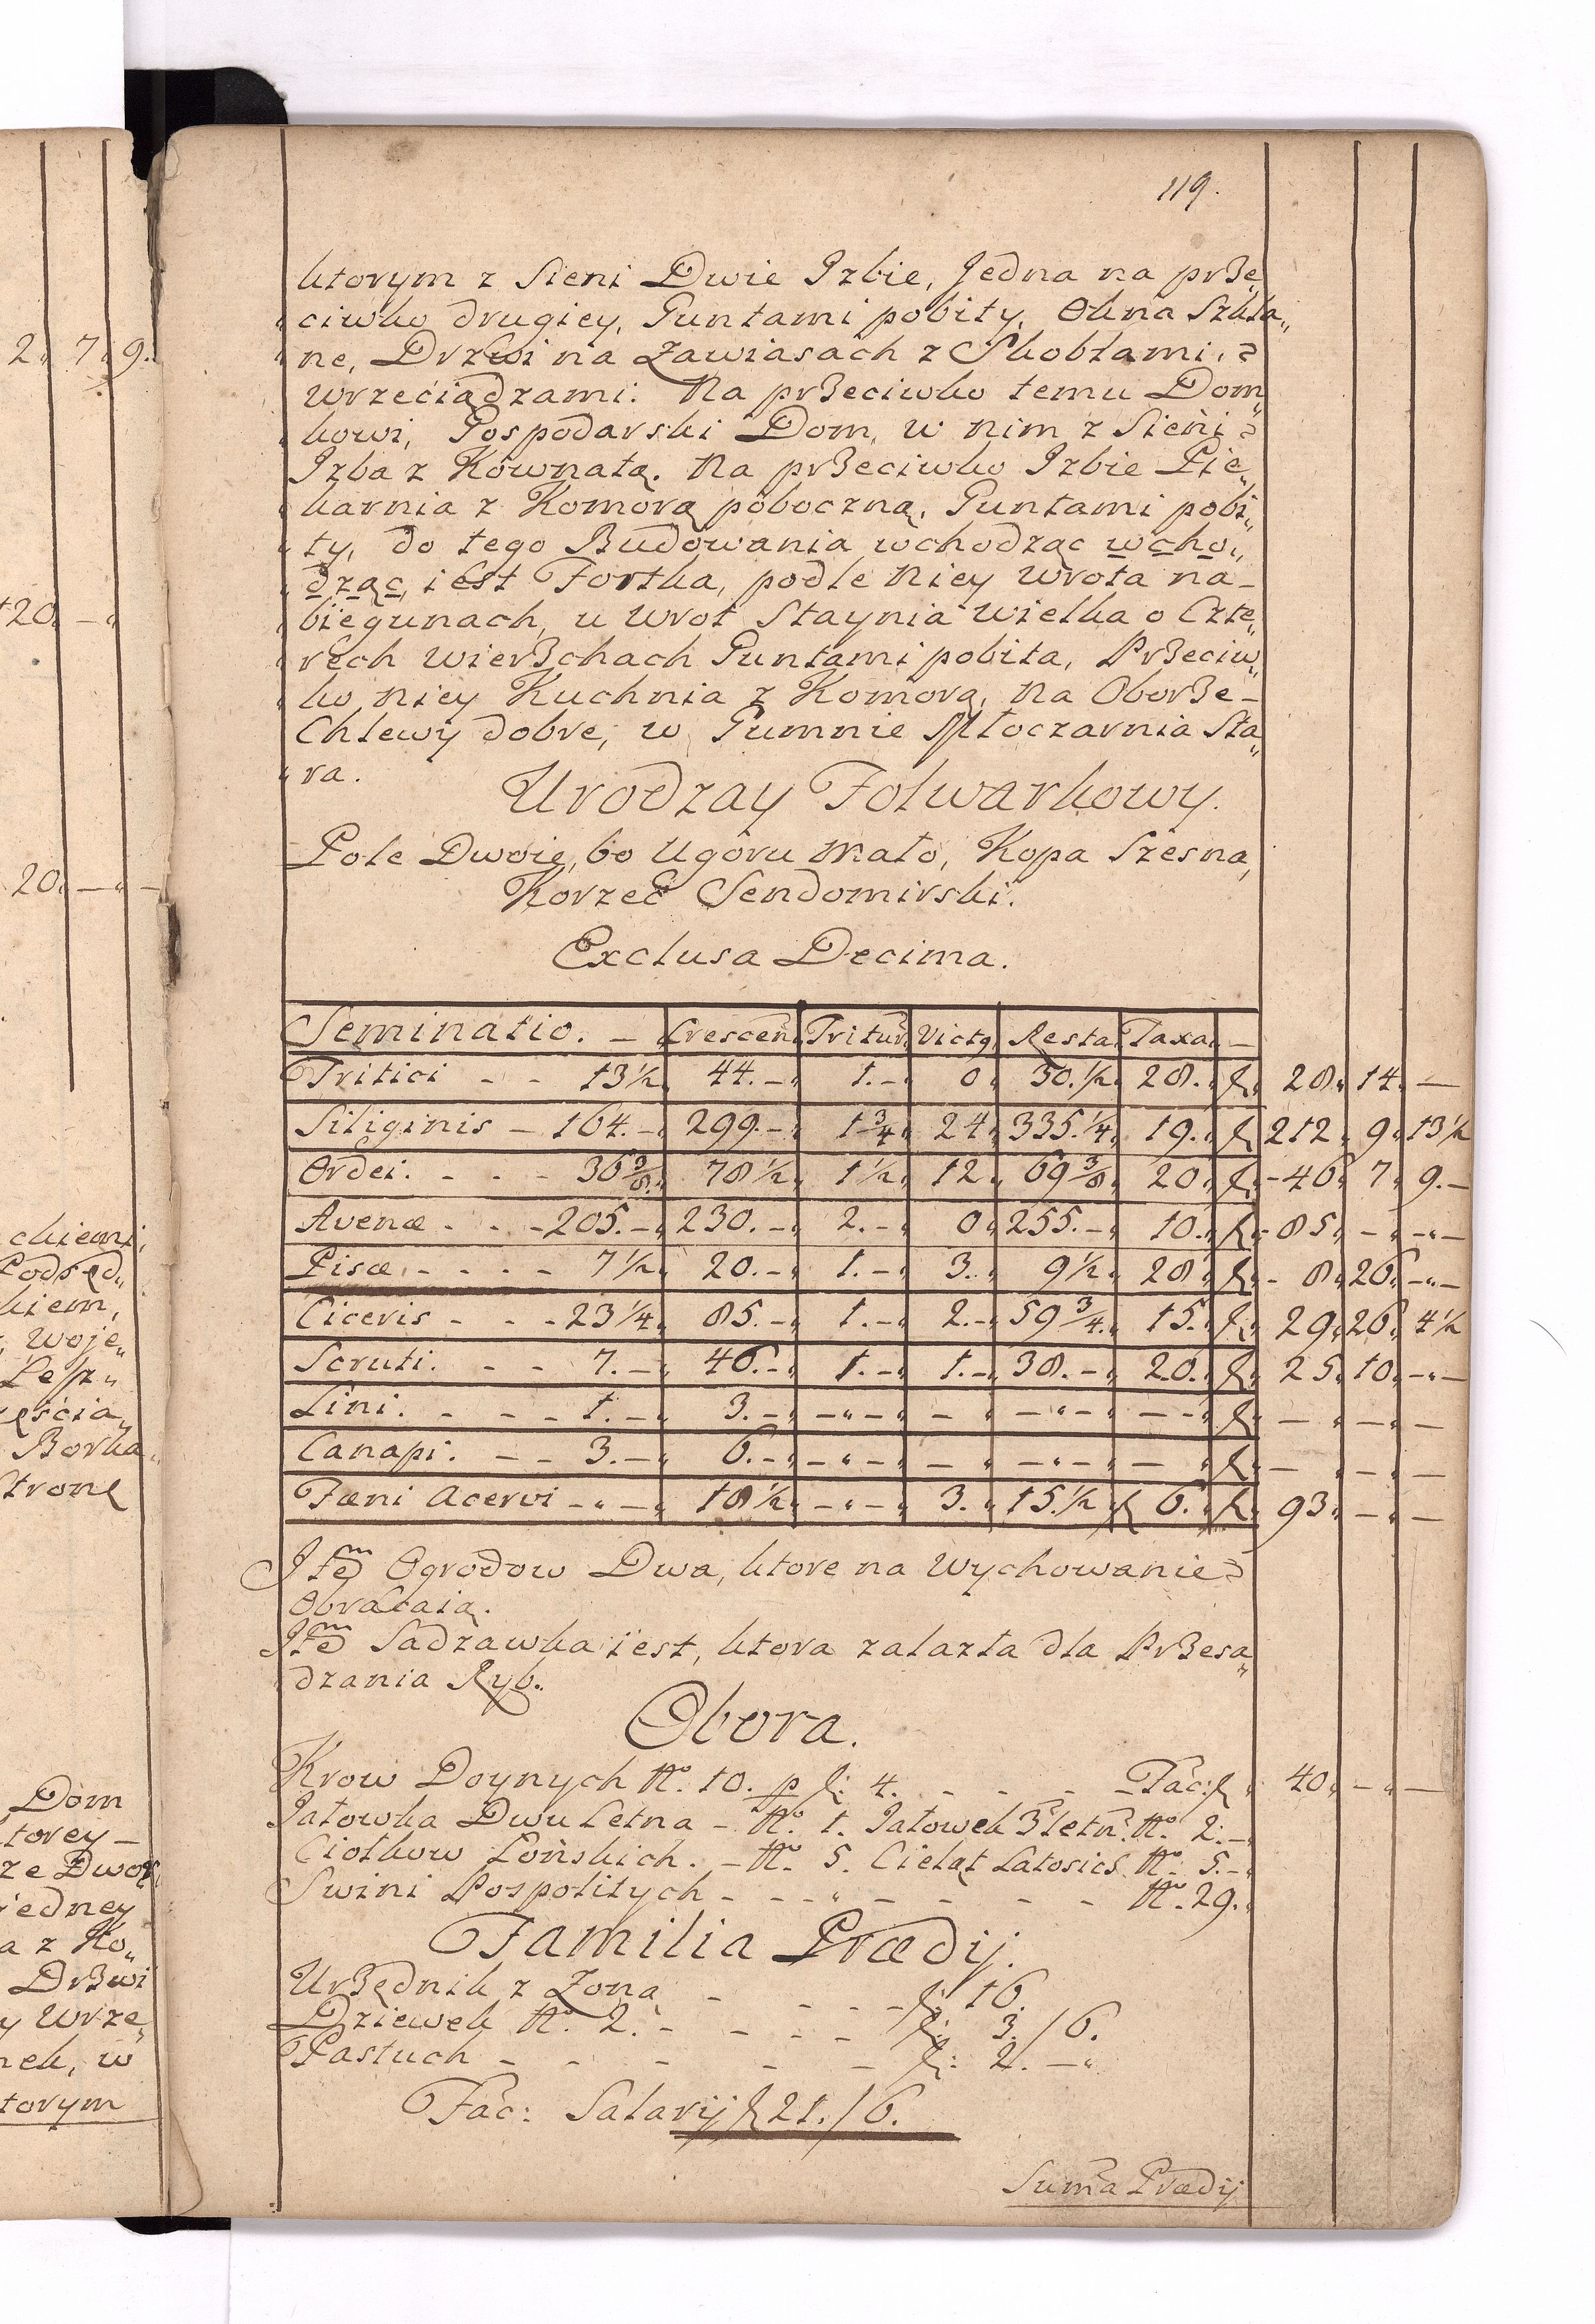 119.
ktorym z Sieni Dwie Izbie, Jedna na prze„
„ciwko drugiey, Guntami pobity, Okna Szkla„
„ne, Drzwi na Zawiasach z Skoblami, =
wrzeciądzami: Na przeciwko temu Dom„
„kowi, Gospodarski Dom, w nim z Sieni =
Izba z Kownatą. Na przeciwko Izbie Pie„
„karnia z Komorą poboczną, Guntami pobi„
„ty, do tego Budowania wchodząc wcho„
„dząc, iest Fortka, podle Niey Wrota na -
„biegunach, u Wrot Staynia Wielka o Czte„
„rech Wierzchach Guntami pobita, Przeciw„
„ko niey Kuchnia z Komorą, na Oborze -
Chlewy dobre, w Gumnie Młoczarnia Sta„
„ra.
Urodzay Folwarkowy.
Pole Dwoie, bo Ugoru mało, Kopa Szesna,
Korzec Sendomirski.
Exclusa Decima.
Seminatio. - Crescen. Tritur. Victq Resta. Taxa. -
Tritici - - 13½ 44.- 1.- 0 30.½ 28. f. 28 14 -
Siliginis - 164.- 299.- 1¾ 24 335.¼ 19. f. 212 9 13½
Ordei. - - - 36⅜ 78½ 1½ 12 69⅜ 20. f. - 46 7 9.-
Avenæ - - - 205.- 230.- 2.- 0 255.- 10. f. - 85 - - -
Pisæ - - - - 7½ 20.- 1.- 3. 9½ 28 f. - 8 26 - -
Ciceris - - - 23¼ 85.- 1.- 2.- 59¾ 15. f. 29 26 4½
Scruti. - - - 7.- 46.- 1.- 1.- 38.- 20. f. 25 10 - -
Lini. - - - 1.- 3.- - - - - - - - f. - - -
Canapi. - - 3.- 6.- - - - - - - - f. - - -
Fæni Acervi - - - 18½ - - 3. 15.½ f 6. f. 93 - -
Itẽm Ogrodow Dwa, ktore na Wychowanie =
Obracaią.
Itẽm Sadzawka iest, ktora zalazła dla Przesa„
„dzania Ryb.
Obora.
Krow Doynych No. 10. p f: 4. - - - - Fac: f 40 - -
Jałowka Dwuletna - No. 1. Jałowek 3letn. No. 2.-
Ciołkow Łońskich. - No. 5. Cieląt Latosics No. 5.-
Swini Pospolitych - - - - - - - No. 29.
Familia Prædij.
Urzędnik z Zoną - - - - f: 16.
Dziewek No. 2. - - - - f: 3./6.
Pastuch - - - - - f: 2. -
Fac: Salarij f 21./6.
Suma Prædij
2 7 9.
20. -
20. - -
Dom
torey -
ze Dwor
iedney
a z Ko„
Drzwi
y Wrze„
nek, w
torym
chiemi,
Podsęd„
kiem,
, Woje„
ęścią„
Borka„
Stronę